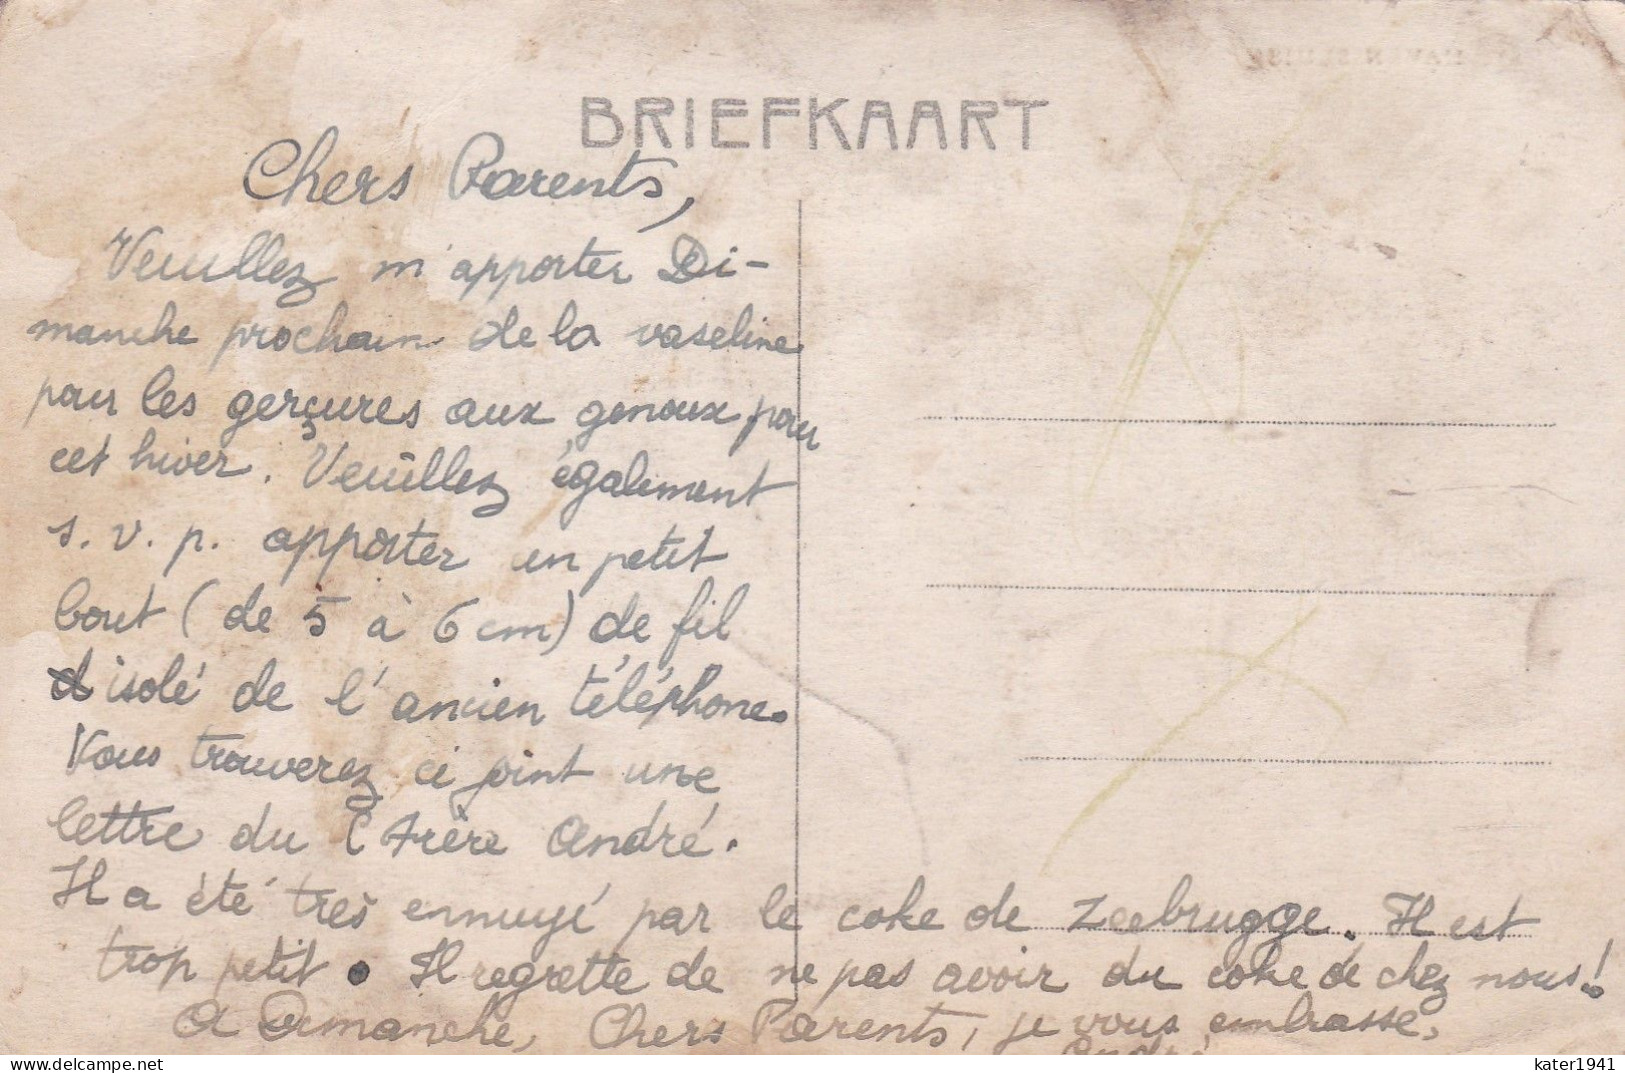 BRIEFKAART
Chers Parents,
Veuillez m'apporter Di-
manche prochain de la vaseline
pour les gerçures aux genoux pour
cet hiver. Veuillez également
s. v. p. apporter un petit
bout (de 5 à 6 cm) de fil
isolé de l'ancien téléphone.
Vous trouverez ci joint une
lettre du C Frère André.
Il a été très ennuyé par le coke de Zeebrugge. Il est
trop petit. Il regrette de ne pas avoir du coke de chez nous!
A Dimanche, Chers Parents, je vous embrasse,
André
kater1941